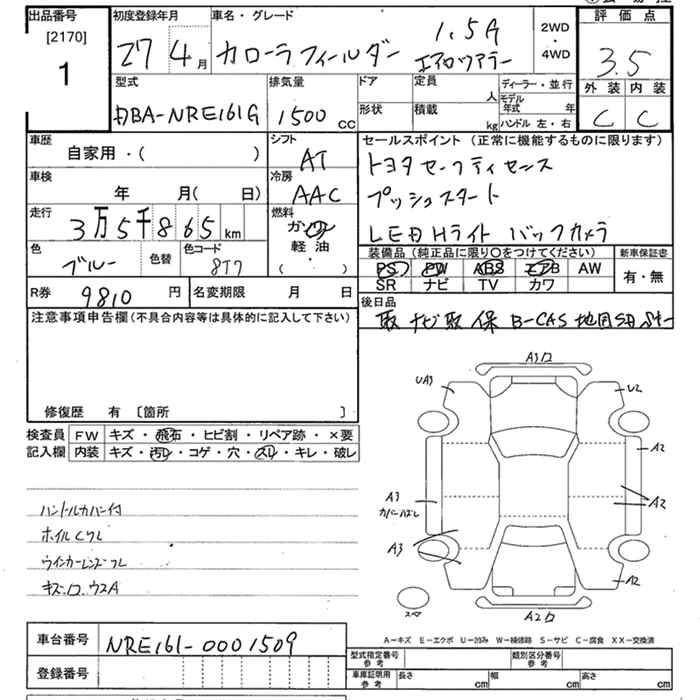 出品番号 初度登録年月 車名・グレード 2WD・4WD 評価点
[2170]
1
27 4月 カローラフィールダー 1.5G エアロツアラー 3.5
外装 内装
C C
型式 排気量 ドア 定員 人 ディーラー・並行
DBA-NRE161G 1500cc 形状 積載 kg モデル年式 年
ハンドル 左・右
車歴 自家用・( ) シフト AT セールスポイント (正常に機能するものに限ります)
トヨタセーフティセンス
車検 年 月( 日) 冷房 AAC プッシュスタート
走行 3万5千865km 燃料 ガソリン 軽油 ( ) LED Hライト バックカメラ
色 ブルー 色替 色コード 8T7
装備品 (純正品に限り○をつけてください) 新車保証書
PS PW ABS エアB AW 有・無
SR ナビ TV カワ
R券 9810円 名変期限 月 日
後日品
取 ナビ取 保 B-CAS 地図SD
注意事項申告欄(不具合内容等は具体的に記入して下さい)
修復歴 有 〔箇所 〕
検査員 FW キズ・飛石・ヒビ割・リペア跡・×要
記入欄 内装 キズ・汚レ・コゲ・穴・スレ・キレ・破レ
ハンドルカバー付
ホイルCワレ
ウインカーレンズワレ
A3
UA3 U2
A2
A3 A2
カバーハズレ
A3
A2
スペア A2
A−キズ E−エクボ U−凹み W−補修跡 S−サビ C−腐食 XX−交換済
車台番号 NRE161-0001509
型式指定番号 参考 類別区分番号 参考
登録番号
車庫証明用 参考 長さ cm 幅 cm 高さ cm